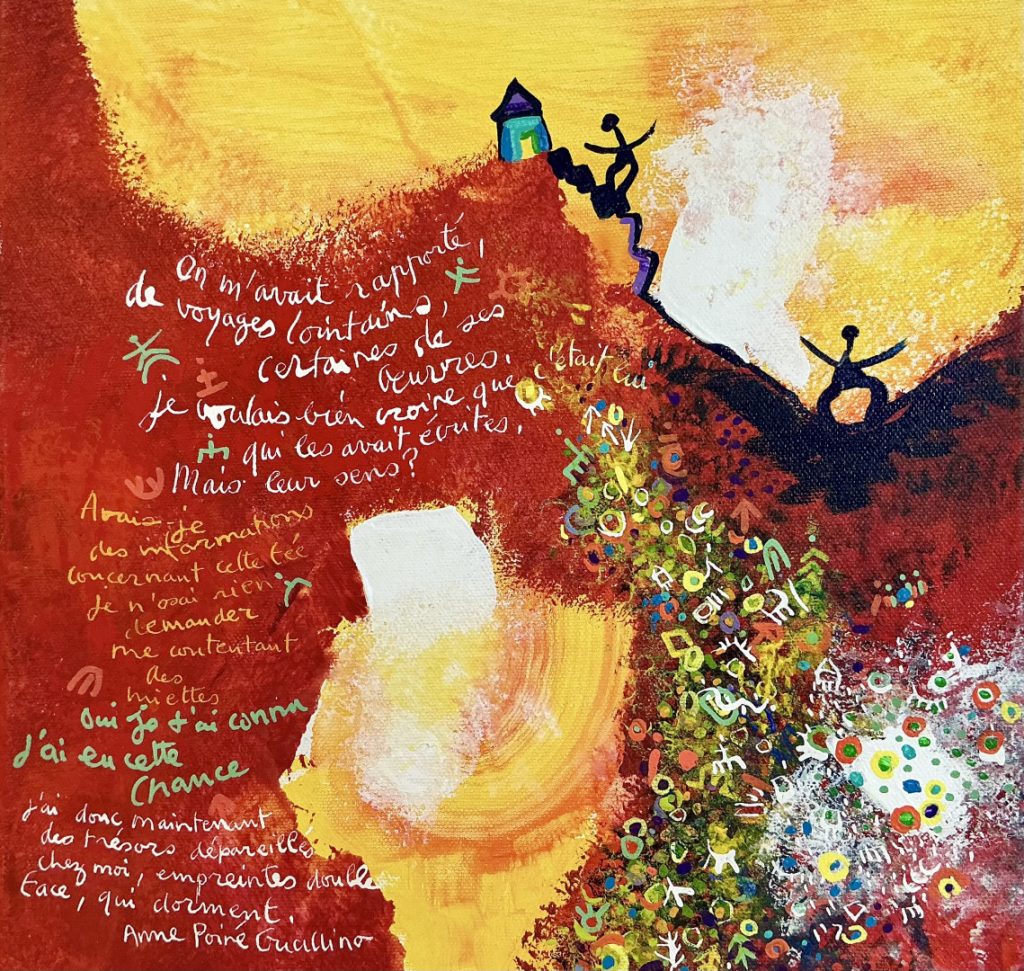 On m'avait rapporté,
de voyages lointains,
certaines de ses
oeuvres.
je voulais bien croire que c'était lui
qui les avait écrites.
Mais leur sens?
Avais-je
des informations
concernant cette
je n'osai rien
demander
me contentant
des
miettes
Oui je t'ai connu
J'ai eu cette
Chance
J'ai donc maintenant
des trésors dépareillés
chez moi, empreintes double
face, qui dorment.
Anne Poiré Guallino